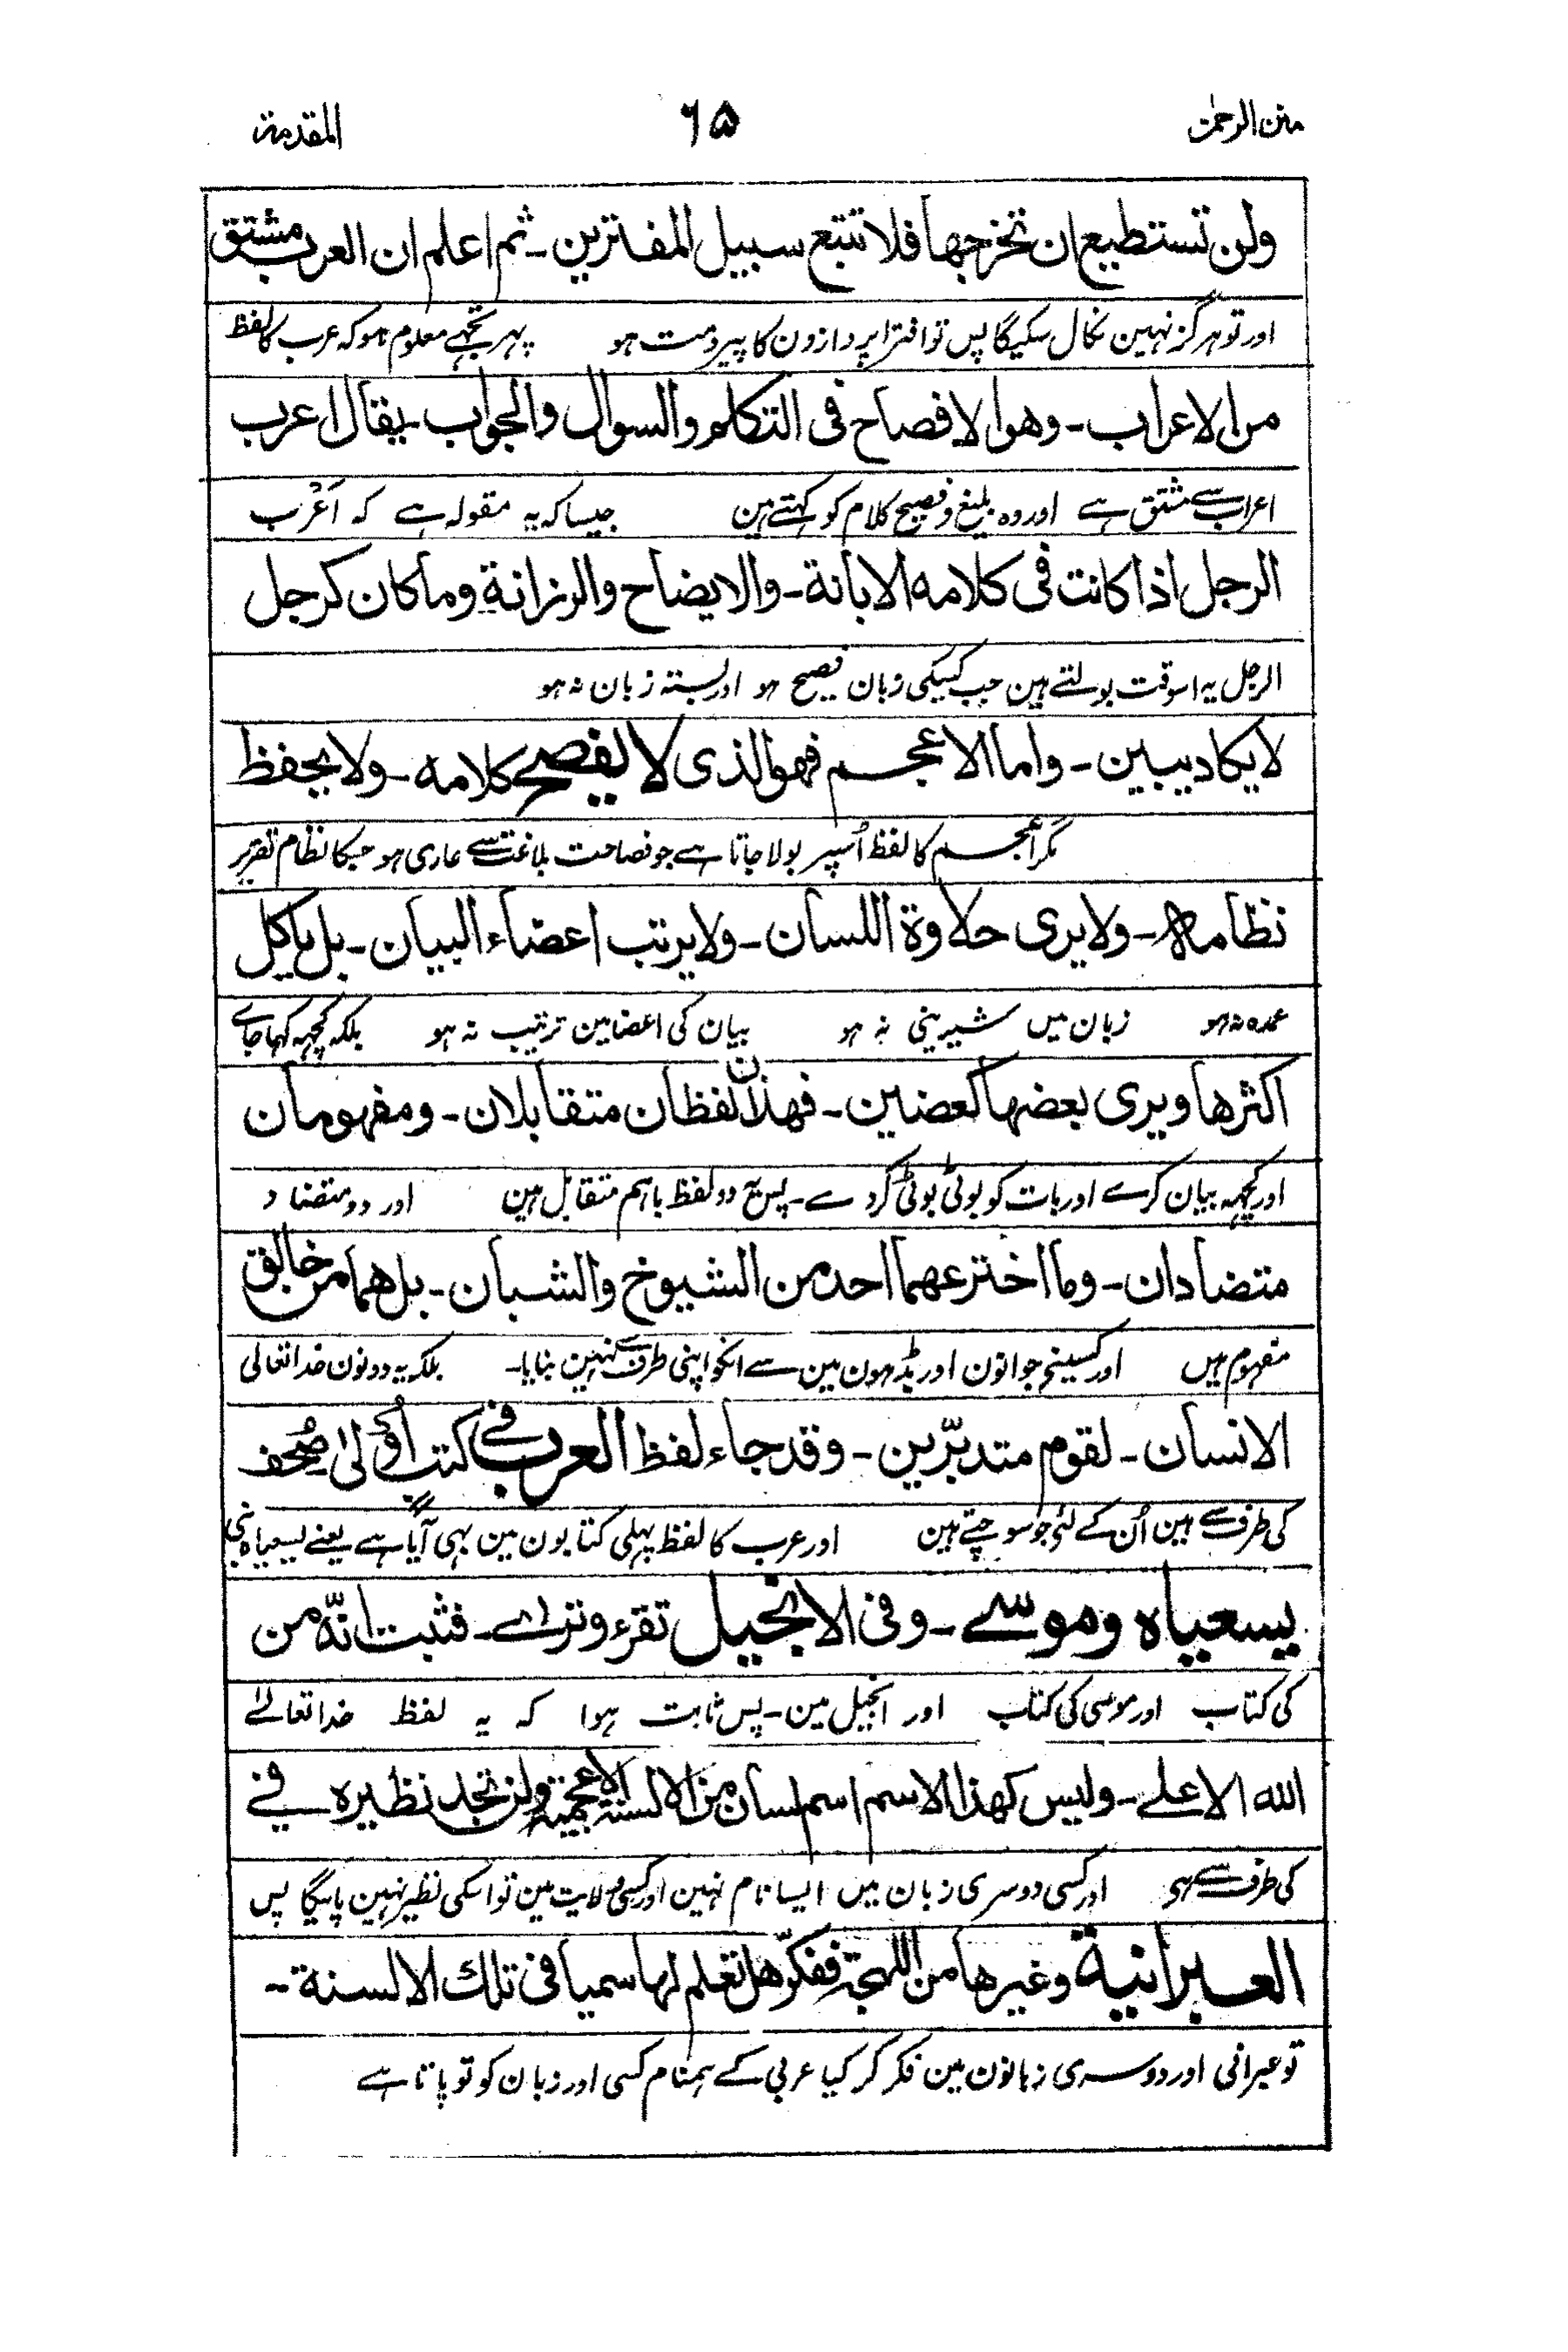 منن الرحمٰن ۶۵ المقدمة
ولن تستطیع ان تخرجها فلا تتبع سبیل المفترین۔ ثم اعلم ان العرب مشتق
اور تو ہرگز نہین نکال سکیگا پس تو افترا پردازون کا پیرو مت ہو پہر تجھے معلوم ہو کہ عرب کا لفظ
من الاعراب۔ وهو الافصاح فی التکلم والسوال والجواب۔ یقال اعرب
اعراب سے مشتق ہے اور وہ بلیغ و فصیح کلام کو کہتے ہین جیسا کہ یہ مقولہ ہے کہ اَعْرَب
الرجل اذا کانت فی کلامه الابانة۔ والایضاح والرزانة وما کان کرجل
الرجل یہ اسوقت بولتے ہین جب کسیکی زبان فصیح ہو اور بستہ زبان نہ ہو
لا یکاد یبین۔ واما الاعجم فهو الذی لا یفصح کلامه۔ ولا یحفظ
مگر اعجم کا لفظ اُسپر بولا جاتا ہے جو فصاحت بلاغت سے عاری ہو جسکا نظام تقریر
نظامه۔ ولا یری حلاوة اللسان۔ ولا یرتب اعضاء البیان۔ بل یاکل
عمدہ نہ ہو زبان میں شیرینی نہ ہو بیان کی اعضا مین ترتیب نہ ہو بلکہ کچہہ کہا جائے
اکثرها ویری بعضها کعضین۔ فهذان لفظان متقابلان۔ ومفهومان
اور کچہہ بیان کرے اور بات کو بوٹی بوٹی کردے۔ پس یہ دو لفظ باہم متقابل ہین اور دو متضاد
متضادان۔ وما اخترعهما احد من الشیوخ والشبان۔ بل هما من خالق
مفہوم ہیں اور کسینے جوانون اور بڈہون مین سے انکو اپنی طرف سے نہین بنایا۔ بلکہ یہ دونون خدا تعالی
الانسان۔ لقوم متدبّرین۔ وقد جاء لفظ العرب فی کتب اُولٰی صُحف
کی طرف سے ہین اُن کے لئے جو سوچتے ہین اور عرب کا لفظ پہلی کتابون مین بہی آیا ہے یعنے یسعیاہ نبی
یسعیاہ وموسے۔ وفی الانجیل تقرء وتری۔ فثبت انّه من
کی کتاب اور موسی کی کتاب اور انجیل مین۔ پس ثابت ہوا کہ یہ لفظ خدا تعالیٰ
الله الاعلے۔ ولیس کهذا الاسم اسم لسان من الالسنة الاعجمیة ولن تجد نظیره فی
کی طرف سے ہی اور کسی دوسری زبان میں ایسا نام نہین اور کسی ولایت مین تو اسکی نظیر نہین پائیگا پس
العبرانیة وغیرها من اللهجة ففکّر هل تعلم لها سمیا فی تلك الالسنة۔
تو عبرانی اور دوسری زبانون مین فکر کر کیا عربی کے ہمنام کسی اور زبان کو تو پاتا ہے